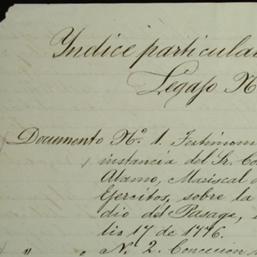 Yndice particula
Legajo N
Documento Nº. 1. Testimoni
instancia del Sr. Co
Alamo, Mariscal d
Ejercitos, sobre la
dio del Pasage,
lio 17 de 1776
" " Nº 2. Concecion